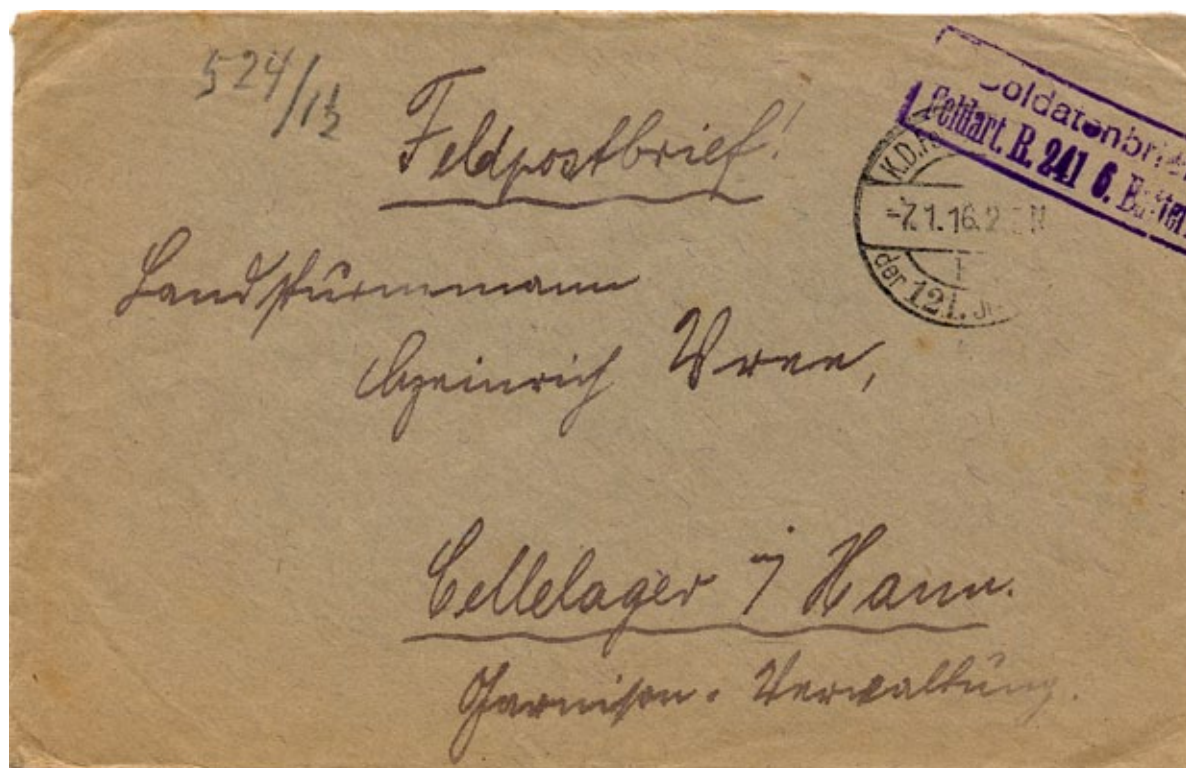 524/13
Feldpostbrief!
Soldatenbrief
Feldart. R. 241 6. Batter
K.D.
-7.1.16.2 N
der 121. J
Landsturmmann
Heinrich Vree,
Cellelager i/ Hann.
Garnison-Verwaltung.